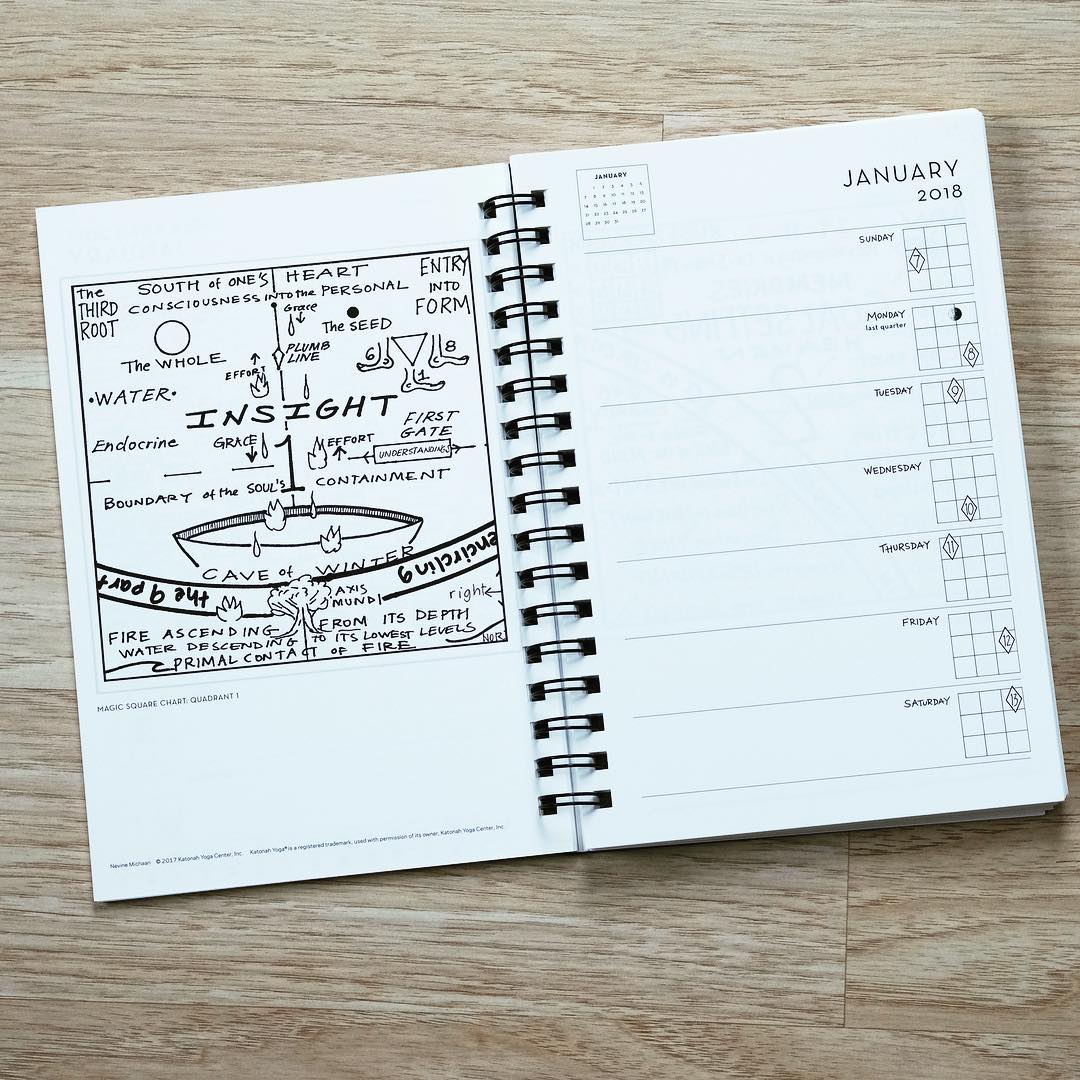 The THIRD ROOT
SOUTH of ONE'S HEART
CONSCIOUSNESS INTO the PERSONAL
ENTRY INTO FORM
Grace
The SEED
The WHOLE
PLUMB LINE
EFFORT
6
8
1
•WATER•
INSIGHT
FIRST GATE
Endocrine
GRACE
1
EFFORT
UNDERSTANDING
BOUNDARY of the SOUL'S CONTAINMENT
CAVE of WINTER
the 9 part
encircling
AXIS MUNDI
right
FIRE ASCENDING FROM ITS DEPTH
WATER DESCENDING TO ITS LOWEST LEVELS
PRIMAL CONTACT OF FIRE
MAGIC SQUARE CHART: QUADRANT 1
Nevine Michaan © 2017 Katonah Yoga Center, Inc. Katonah Yoga® is a registered trademark, used with permission of its owner, Katonah Yoga Center, Inc.
JANUARY
1 2 3 4 5 6
7 8 9 10 11 12 13
14 15 16 17 18 19 20
21 22 23 24 25 26 27
28 29 30 31
JANUARY
2018
SUNDAY
7
MONDAY
last quarter
8
TUESDAY
9
WEDNESDAY
10
THURSDAY
11
FRIDAY
12
SATURDAY
13